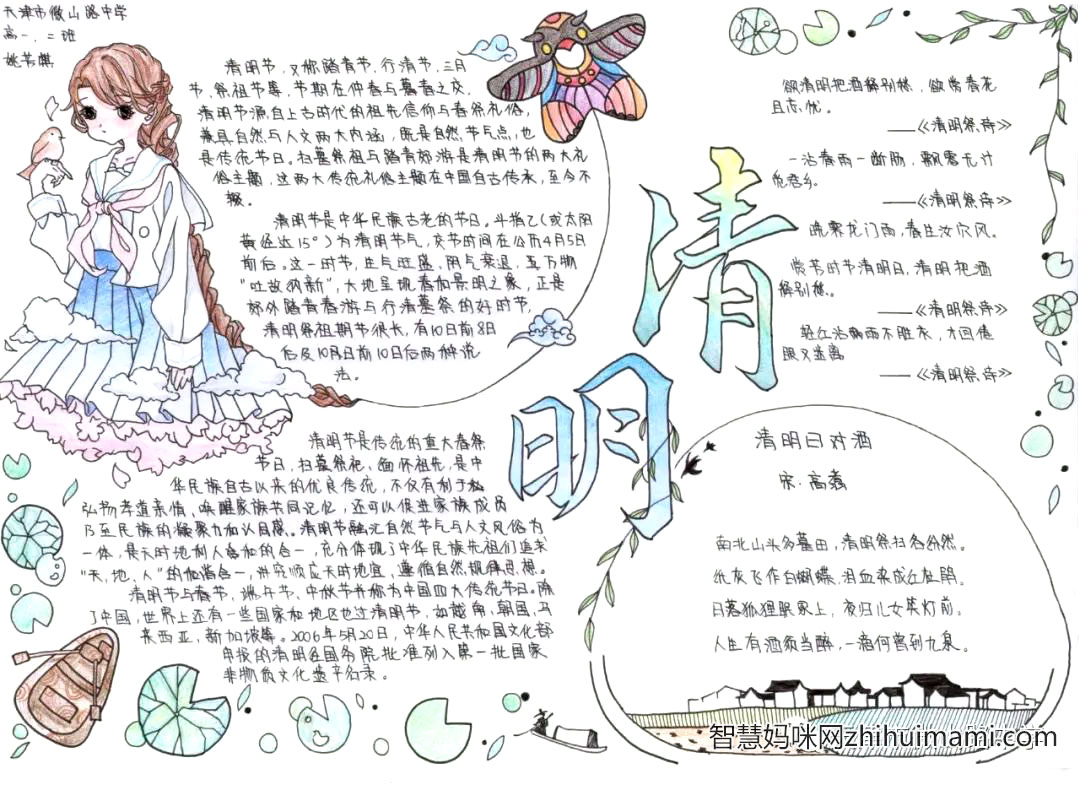 天津市微山路中学
高一.二班
姚若麒
清明节，又称踏青节，行清节，三月
节，祭祖节等，节期在仲春与暮春之交。
清明节源自上古时代的祖先信仰与春祭礼俗，
兼具自然与人文两大内涵，既是自然节气点，也
是传统节日。扫墓祭祖与踏青郊游是清明节的两大礼
俗主题，这两大传统礼俗主题在中国自古传承，至今不
辍。
清明节是中华民族古老的节日。斗指乙(或太阳
黄经达15°)为清明节气，交节时间在公历4月5日
前后。这一时节，生气旺盛，阴气衰退，万物
"吐故纳新"，大地呈现春和景明之象，正是
郊外踏青春游与行清墓祭的好时节，
清明祭祖期节很长，有10日前8日
后及10日前10日后两种说
法。
清明节是传统的重大春祭
节日，扫墓祭祀、缅怀祖先，是中
华民族自古以来的优良传统，不仅有利于
弘扬孝道亲情、唤醒家族共同记忆，还可以促进家族成员
乃至民族的凝聚力和认同感。清明节融汇自然节气与人文风俗为
一体，是天时地利人和的合一，充分体现了中华民族先祖们追求
"天、地、人"的和谐合一，讲究顺应天时地宜、遵循自然规律思想。
清明节与春节，端午节、中秋节并称为中国四大传统节日。除
了中国，世界上还有一些国家和地区也过清明节，如越南，韩国，马
来西亚，新加坡等。2006年5月20日，中华人民共和国文化部
申报的清明经国务院批准列入第一批国家
非物质文化遗产名录。
清明
欲清明把酒解别愁，欲赏春花
且忘忧。
——《清明祭诗》
一沾春雨一断肠，飘零无计
——《清明祭诗》
晚霁龙门雨，春生汝穴风。
赏芳时节清明日，清明把酒
解别愁。
——《清明祭诗》
——《清明祭诗》
清明日对酒
宋·高翥
南北山头多墓田，清明祭扫各纷然。
纸灰飞作白蝴蝶，泪血染成红杜鹃。
日暮狐狸眠冢上，夜归儿女笑灯前。
人生有酒须当醉，一滴何曾到九泉。
智慧妈咪网zhihuimami.com